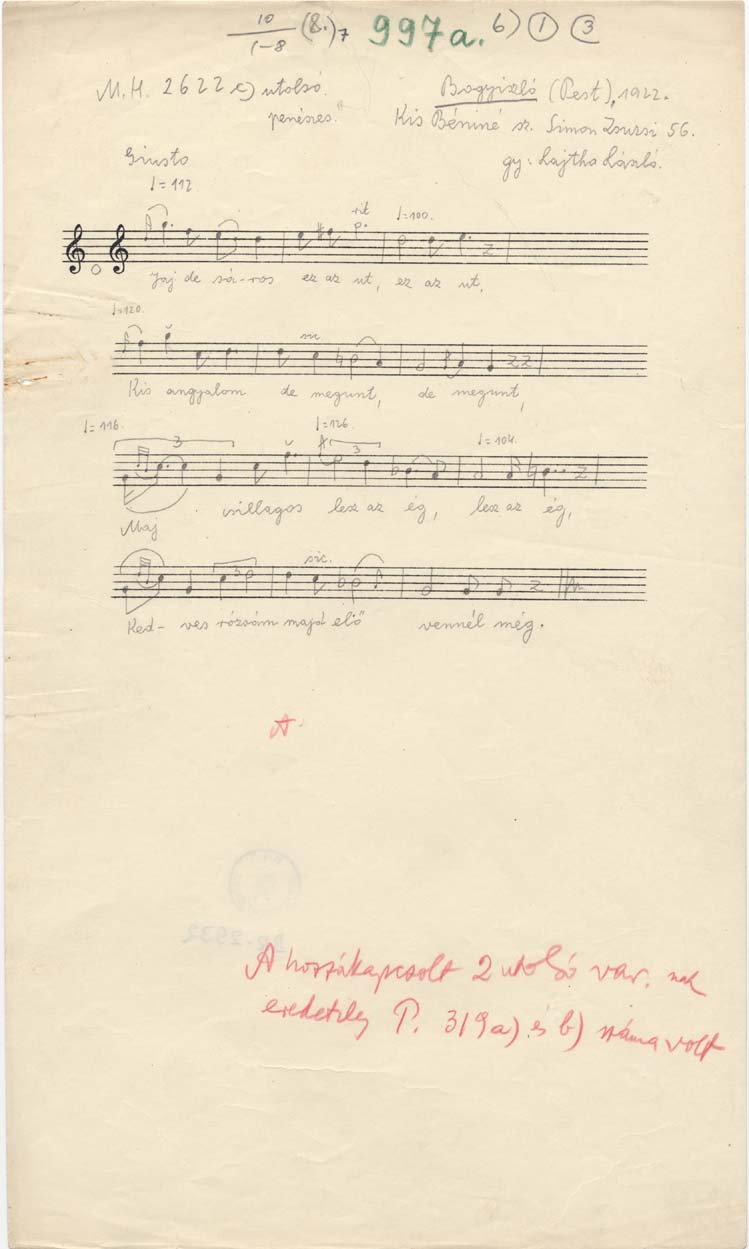 10 (8.)7 997a. 6) 1 3
1-8
M.H. 2622 c) utolsó. Bogyiszló (Pest), 1922.
penészes." Kis Béniné sz. Simon Zsuzsi 56.
Giusto gy: Lajtha László.
♩=112. rit ♩=100.
Jaj de sá-ros ez az ut, ez az ut,
♩=120.
Kis angyalom de megunt, de megunt,
♩=116. ♩=126. ♩=104.
3 3
Maj csillagos lesz az ég, lesz az ég,
sic.
3
Ked- ves rózsám majd elő" vennél még.
A
A hozzákapcsolt 2 utolsó var. nak
eredetileg P. 319a) és b) száma volt